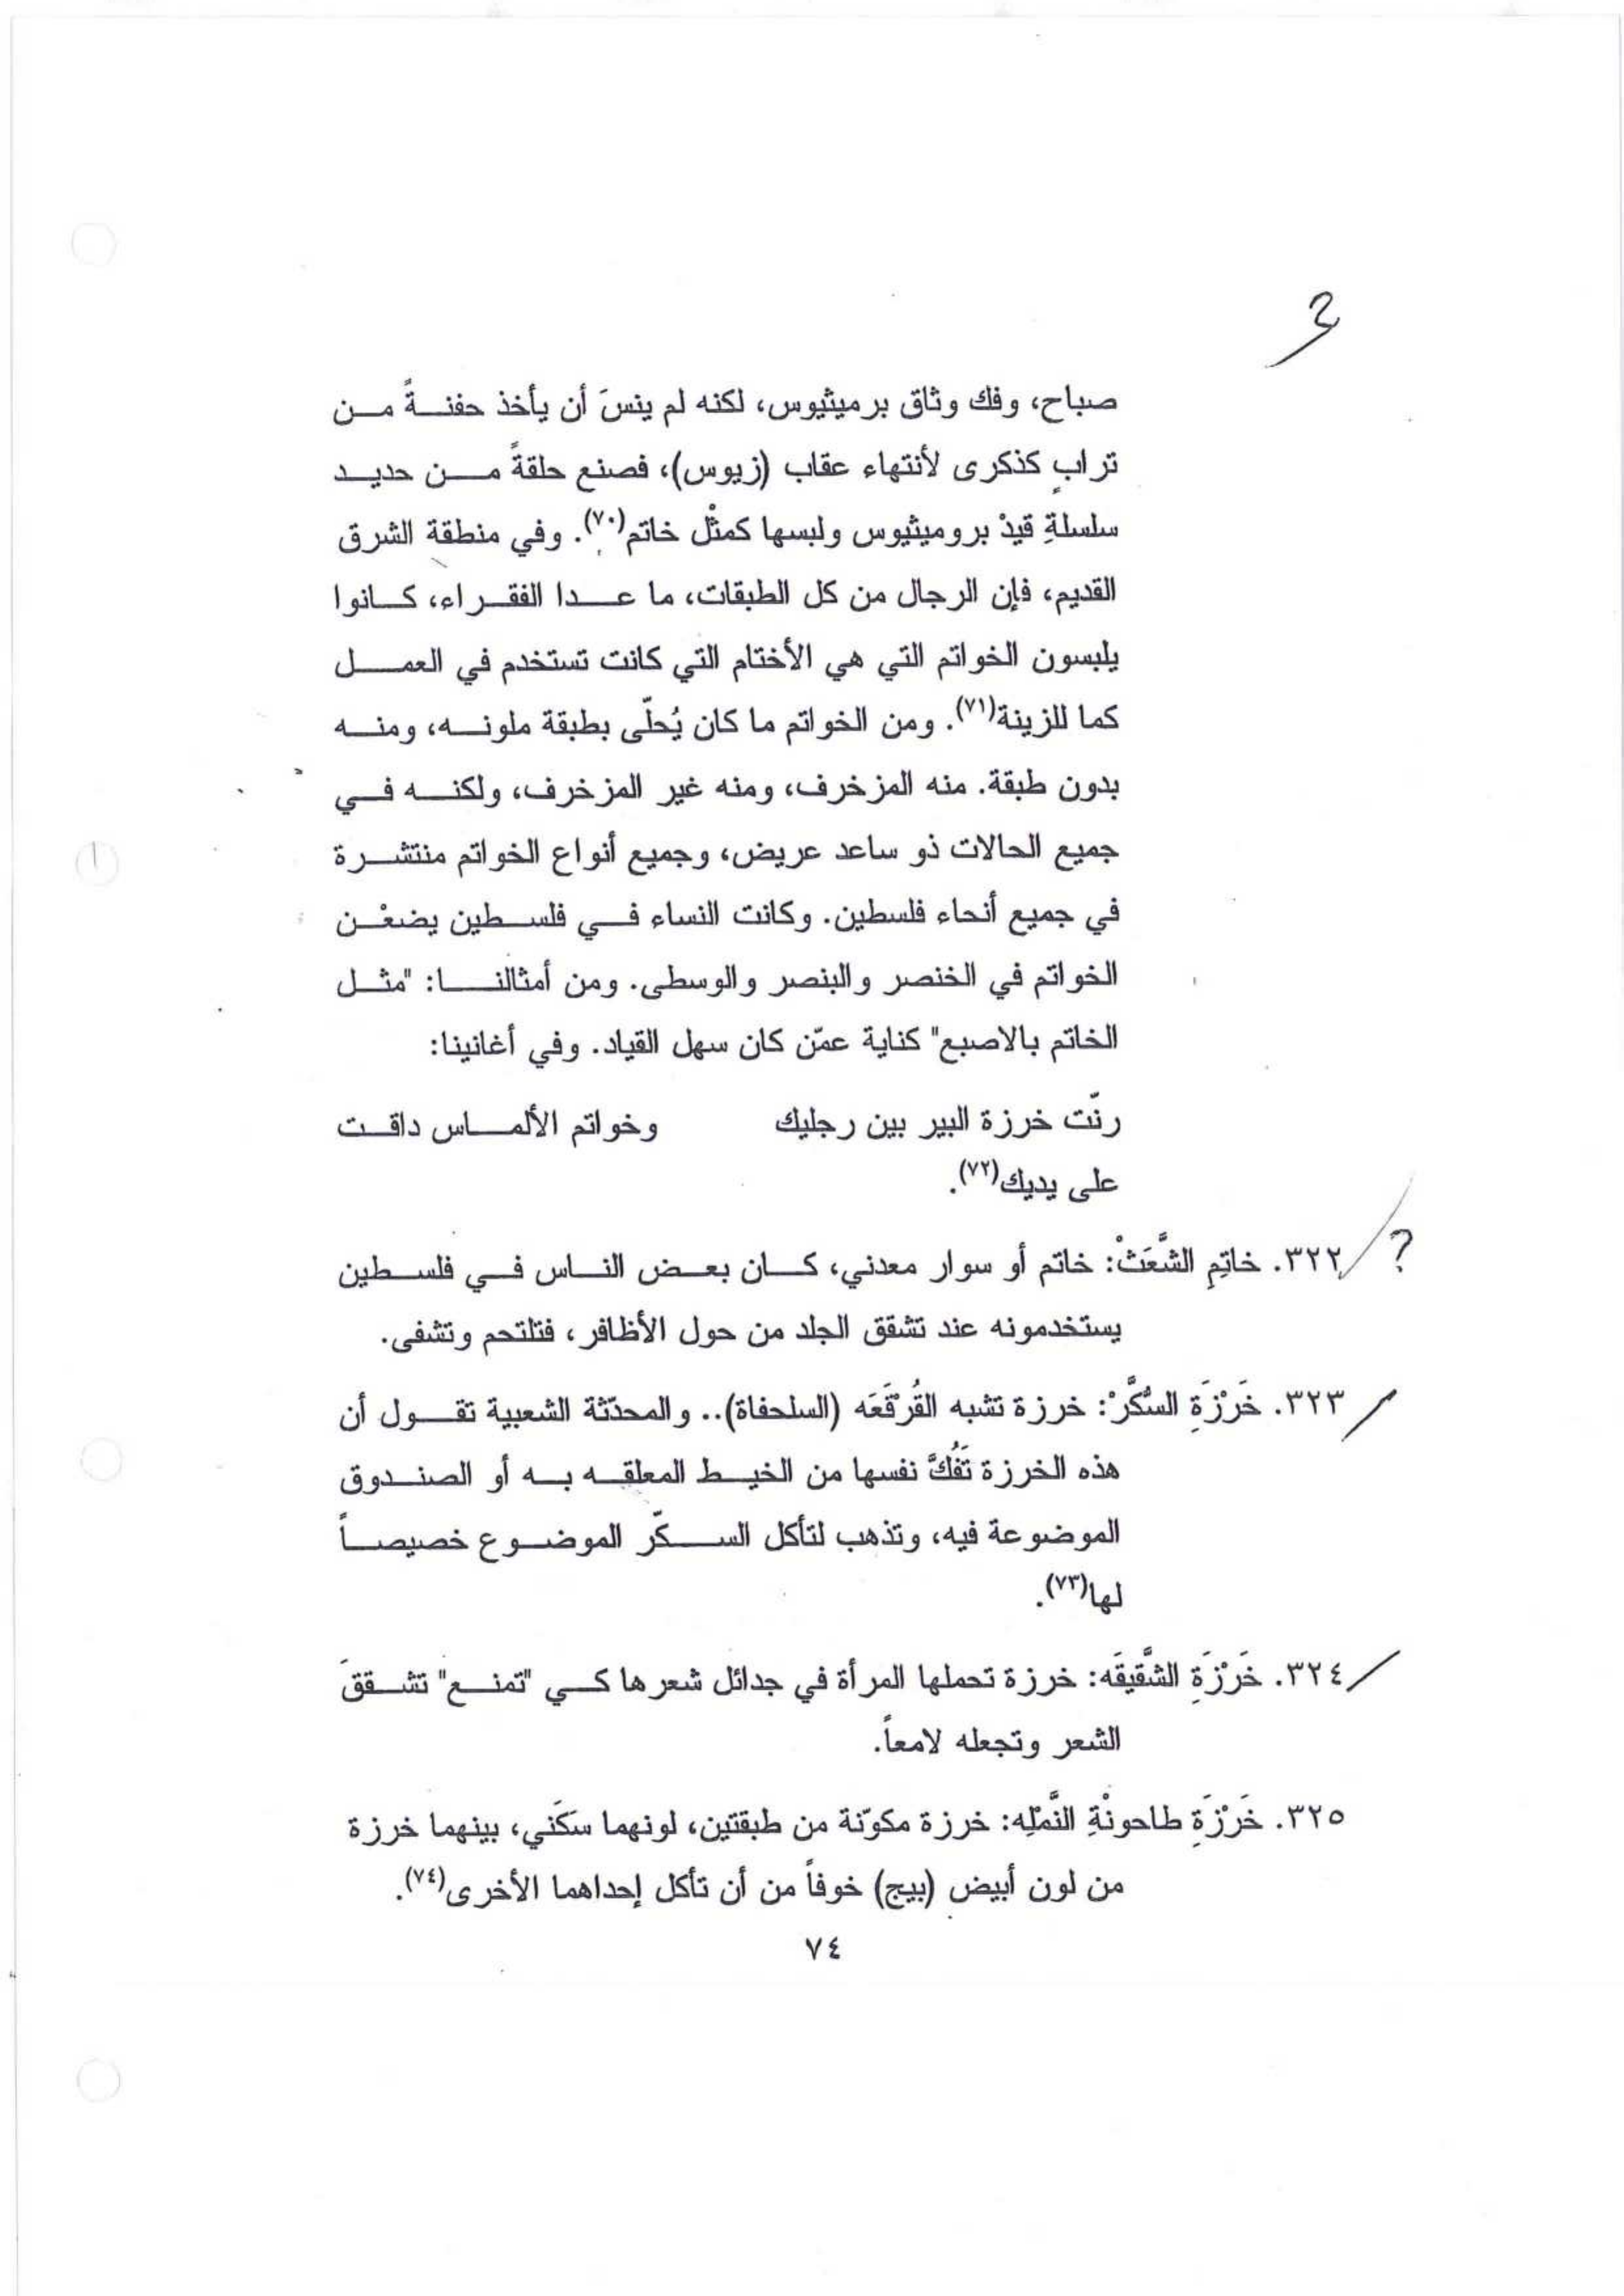 صباح، وفك وثاق برميثيوس، لكنه لم ينسَ أن يأخذ حفنةً من
ترابٍ كذكرى لأنتهاء عقاب (زيوس)، فصنع حلقةً من حديد
سلسلةِ قيدْ بروميثيوس ولبسها كمثْل خاتم(٧٠). وفي منطقة الشرق
القديم، فإن الرجال من كل الطبقات، ما عدا الفقراء، كانوا
يلبسون الخواتم التي هي الأختام التي كانت تستخدم في العمل
كما للزينة(٧١). ومن الخواتم ما كان يُحلّى بطبقة ملونه، ومنه
بدون طبقة. منه المزخرف، ومنه غير المزخرف، ولكنه في
جميع الحالات ذو ساعد عريض، وجميع أنواع الخواتم منتشرة
في جميع أنحاء فلسطين. وكانت النساء في فلسطين يضعْن
الخواتم في الخنصر والبنصر والوسطى. ومن أمثالنا: "مثل
الخاتم بالاصبع" كناية عمّن كان سهل القياد. وفي أغانينا:
رنّت خرزة البير بين رجليك وخواتم الألماس داقت
على يديك(٧٢).
؟ ٣٢٢. خاتِمِ الشَّعَثْ: خاتم أو سوار معدني، كان بعض الناس في فلسطين
يستخدمونه عند تشقق الجلد من حول الأظافر، فتلتحم وتشفى.
٣٢٣. خَرْزَةِ السُّكَّرْ: خرزة تشبه القُرْقَعَه (السلحفاة).. والمحدّثة الشعبية تقول أن
هذه الخرزة تَفُكَّ نفسها من الخيط المعلقه به أو الصندوق
الموضوعة فيه، وتذهب لتأكل السكّر الموضوع خصيصاً
لها(٧٣).
٣٢٤. خَرْزَةِ الشَّقيقَه: خرزة تحملها المرأة في جدائل شعرها كي "تمنع" تشققَ
الشعر وتجعله لامعاً.
٣٢٥. خَرْزَةِ طاحونْةِ النَّمْلِه: خرزة مكوّنة من طبقتين، لونهما سَكَني، بينهما خرزة
من لون أبيض (بيج) خوفاً من أن تأكل إحداهما الأخرى(٧٤).
٧٤